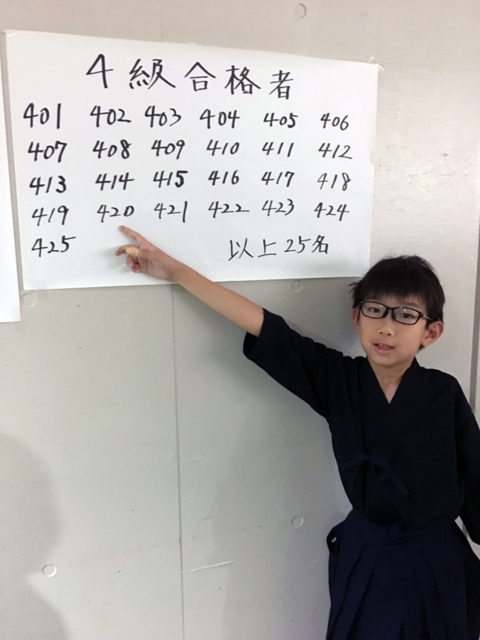 4級合格者
401 402 403 404 405 406
407 408 409 410 411 412
413 414 415 416 417 418
419 420 421 422 423 424
425 以上25名